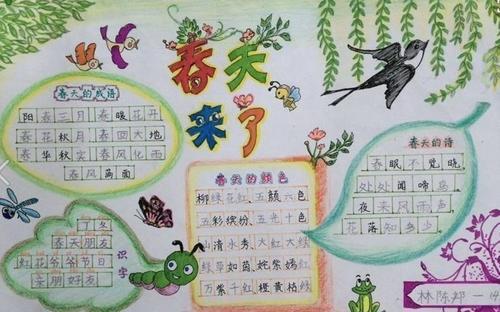 春天
来了
春天的成语
阳春三月 春暖花开
春花秋月 春回大地
春华秋实 春风化雨
春风满面
春天的颜色
柳绿花红、五颜六色
五彩缤纷、五光十色
山清水秀、大红大绿
绿草如茵、姹紫嫣红
万紫千红 橙黄桔绿
春天的诗
春眠不觉晓
处处闻啼鸟
夜来风雨声
花落知多少
识字
丁冬
春天朋友
红花爷爷节日
亲朋好友